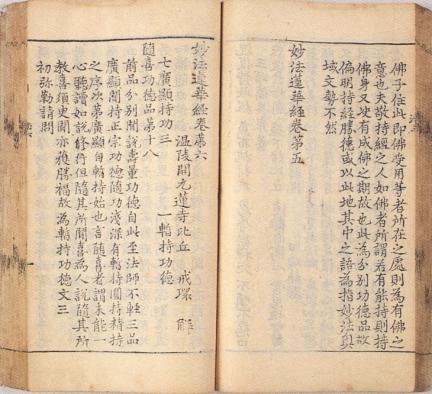 佛子住此即佛受用等者所在之處則為有佛之
意也夫敬持經之人如佛者所謂若有能持則持
佛身又使有成佛之期故也此為分別功德品故
偏明持經勝德或以此地其中之語為指妙法與
域文勢不然
妙法蓮華經卷第五
妙法蓮華經卷第六
溫陵開元蓮寺比丘 戒環 解
七廣顯持功三 一轉持功德
隨喜功德品第十八
前品分別聞說壽量功德自此至法師不輕三品
廣顯聞持正宗功德隨功淺深有轉持圓持精持
之序次第廣顯自轉持始也言隨喜者謂未能一
心聽讀如說修行但隨其所聞喜為人說隨其所
教喜須臾聞亦獲勝福故為轉持功德文三
初弥勒請問